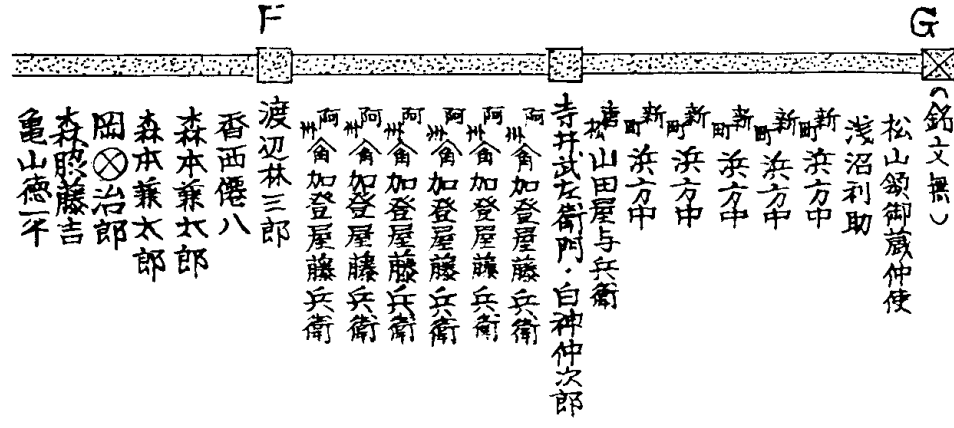 G
F
(銘文無し)
松山領御蔵仲使
浅沼利助
新町 浜方中
新町 浜方中
新町 浜方中
新町 浜方中
新町 浜方中
松山田屋与兵衛
寺井武左衛門・白神仲次郎
阿州 角加登屋藤兵衛
阿州 角加登屋藤兵衛
阿州 角加登屋藤兵衛
阿州 角加登屋藤兵衛
阿州 角加登屋藤兵衛
阿州 角加登屋藤兵衛
渡辺林三郎
香西僊八
森本兼太郎
森本兼太郎
岡⊗治郎
森脇藤吉
亀山徳平